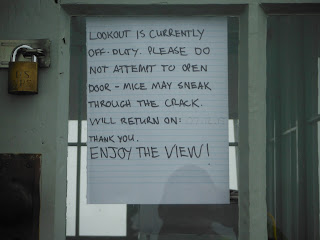 LOOKOUT IS CURRENTLY
OFF-DUTY. PLEASE DO
NOT ATTEMPT TO OPEN
DOOR - MICE MAY SNEAK
THROUGH THE CRACK.
WILL RETURN ON:
THANK YOU.
ENJOY THE VIEW!